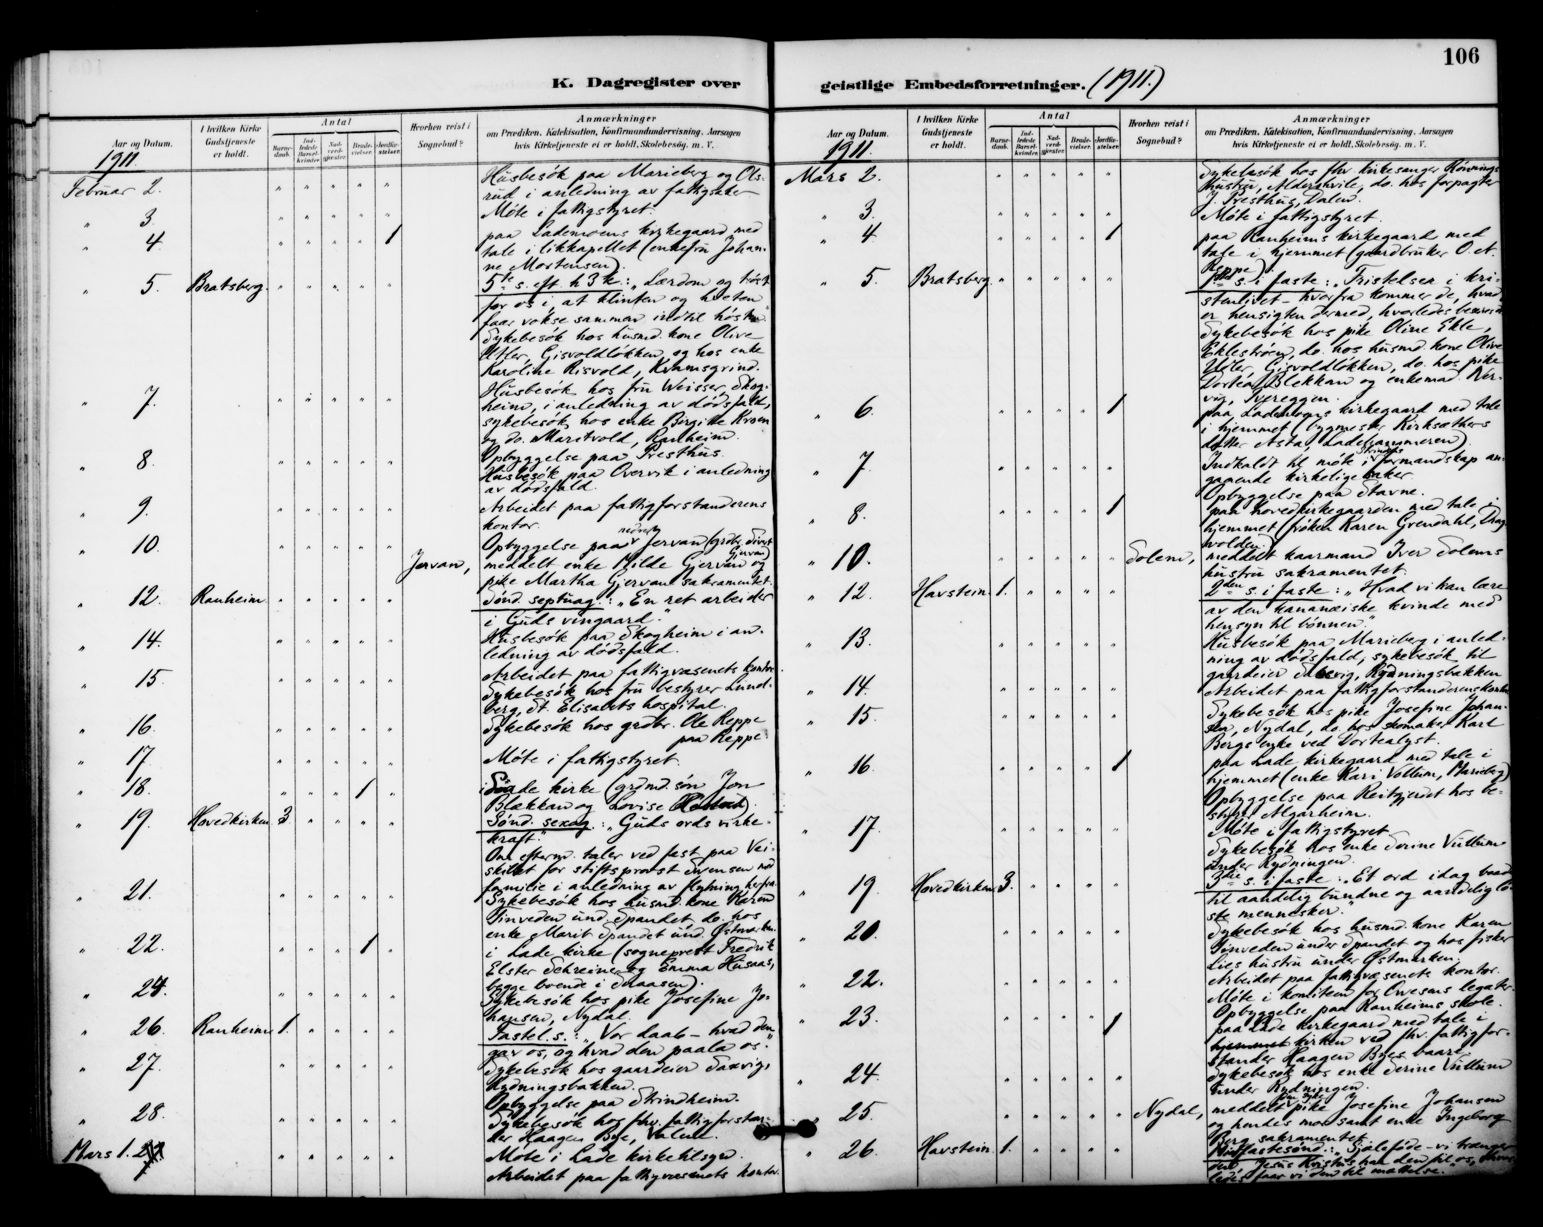 106
K. Dagregister over
geistlige Embedsforretninger. (1911.)
Aar og Datum.
I hvilken Kirke Gudstjeneste er holdt.
Antal
Barnedaab.
Indledede Barselkvinder.
Nadverdgjester.
Brudevielser.
Jordfæstelser.
Hvorhen reist i Sognebud?
Anmærkninger
om Prædiken, Katekisation, Konfirmandundervisning, Aarsagen
hvis Kirketjeneste ei er holdt, Skolebesøg, m. V.
1911.
Februar 2. Husbesök paa Marieberg og Ols-
rud i anledning av fattigsaker
" 3. Möte i fattigstyret.
" 4. 1 paa Lademoens kirkegaard med
tale i likkapellet (enkefru Johan-
ne Mortensen).
" 5. Bratsberg. 5te s. eft. h3k.: "Lærdom og tröst
for os i, at klinten og hveten
faar vokse sammen indtil hösten."
Sykebesök hos husmd. kone Olive
Utler, Gisvoldlökken, og hos enke
Karoline Risvold, Kvamsgrind.
" 7. Husbesök hos fru Weisser, Skog-
heim, i anledning av dödsfald,
sykebesök hos enke Bergitte Kroen
og do. Maritvold, Ranheim.
" 8. Opbyggelse paa Presthus.
Husbesök paa Overvik i anledning
av dödsfald.
" 9. Arbeidet paa fattigforstanderens
kontor.
" 10. Jervan, Opbyggelse paa nedre Jervan (grdbr. Sivert
Gjervan)
meddelt enke Hilde Gjervan og
pike Martha Gjervan sakramentet.
" 12. Ranheim. Sönd. septuag.: "En ret arbeider
i Guds vingaard."
" 14. Husbesök paa Skogheim i an-
ledning av dödsfald.
" 15. Arbeidet paa fattigvæsenets kontor.
Sykebesök hos fru bestyrer Lund-
berg, St. Elisabets hospital.
" 16. Sykebesök hos grdbr. Ole Reppe
paa Reppe.
" 17. Möte i fattigstyret.
" 18. 1 i Lade kirke (grdmd. sön Jon
Blækkan og Lovise
" 19. Hovedkirken 3 Sönd. sexag.: "Guds ords virke-
kraft."
Om efterm. taler ved fest paa Vei-
skillet for stiftsprovst Svensen med
familie i anledning av flytning herfra.
" 21. Sykebesök hos husmd. kone Karen
Tinveden und. Spandet, do. hos
enke Marit Spandet und. Östmarken.
" 22. 1 i Lade kirke (sogneprest Fredrik
Elster Schreiner og Emma Husaas,
begge boende i
" 24. Sykebesök hos pike Josefine Jo-
hansen, Nydal.
" 26. Ranheim 1. Fastel.s.: "Vor daab – hvad den
gav os, og hvad den paala os."
" 27. Sykebesök hos gaardeier Saxvig,
Rydningsbakken.
Opbyggelse paa Strindheim.
" 28. Sykebesök hos fhv. fattigforstan-
der Haagen Bye,
Mars 1. Möte i Lade kirketilsyn.
Arbeidet paa fattigvæsenets kontor.
Aar og Datum.
I hvilken Kirke Gudstjeneste er holdt.
Antal
Barnedaab.
Indledede Barselkvinder.
Nadverdgjester.
Brudevielser.
Jordfæstelser.
Hvorhen reist i Sognebud?
Anmærkninger
om Prædiken, Katekisation, Konfirmandundervisning, Aarsagen
hvis Kirketjeneste ei er holdt, Skolebesøg, m. V.
1911.
Mars 2. Sykebesök hos fhv. kirkesanger Hönnings
hustru, Aldershvile, do. hos forpagter
J. Presthus, Dalen.
" 3. Möte i fattigstyret.
" 4. 1 paa Ranheims kirkegaard med
tale i hjemmet (gaardbruker O. et.
Reppe).
" 5. Bratsberg. 1ste s. i faste: "Fristelsen i kri-
stenlivet – hvorfra kommer de, hvad
er hensigten dermed, hvorledes
Sykebesök hos pike Oline Ekle,
Eklestrøen, do. hos husmd. kone Olive
Utler, Gisvoldlökken, do. hos pike
Dortea Blekkan og enkemd. Ner-
vig, Tvereggen.
" 6. 1 paa Lademoens kirkegaard med tale
i hjemmet (bygmester Kirksæthers
datter Asta, Ladehammeren).
" 7. Indkaldt til möte i Strindens formandskap an-
gaaende kirkelige saker.
Opbyggelse paa Stavne.
" 8. 1 paa hovedkirkegaarden med tale i
hjemmet (fröken Karen Grendahl, Drag-
volden)
" 10. Solem, meddelt kaarmand Iver Solems
hustru sakramentet.
" 12. Havstein. 1. 2den s. i faste: "Hvad vi kan lære
av den kananæiske kvinde med
hensyn til bönnen."
" 13. Husbesök paa Marieberg i anled-
ning av dödsfald, sykebesök til
gaardeier Saxvig, Rydningsbakken
" 14. Arbeidet paa fattigforstanderens kontor
" 15. Sykebesök hos pike Josefine Johan-
sen, Nydal, do. hos skomaker Karl
Bergs enke ved Dortealyst.
" 16. 1 paa Lade kirkegaard med tale i
hjemmet (enke Kari Vullum, Marieberg)
Opbyggelse paa Reitgjerdet hos be-
styrer Algarheim.
" 17. Möte i fattigstyret
Sykebesök hos enke Serine Vullum
under Rydningen.
" 19. Hovedkirken 3. 3die s. i faste: "Et ord idag baade
til aandelig bundne og aandelig lö-
ste mennesker."
" 20. Sykebesök hos husmd. kone Karen
Tinveden under Spandet og hos fisker
Lies hustru under Östmarken.
" 22. Arbeidet paa fattigvæsenets kontor.
Möte i komiteen for Owesens legater.
Opbyggelse paa Ranheims skole.
" 23. 1 paa Lade kirkegaard med tale i
hjemmet kirken ved fhv. fattigfor-
stander Haagen Byes baare
" 24. Sykebesök hos enke Serine Vullum
under Rydningen.
" 25. Nydal, meddelt pike Josefine Johansen
og hendes mor samt enke Ingeborg
Berg sakramentet.
" 26. Havstein. 1. Midfastesönd.: "Sjæleföde – vi trænger
den, Jesus Kristus har den til os, hvor-
ledes faar vi den til mættelse."